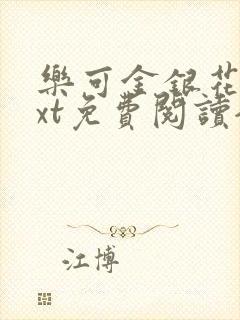 樂可金銀花
xt免費閱讀
江博